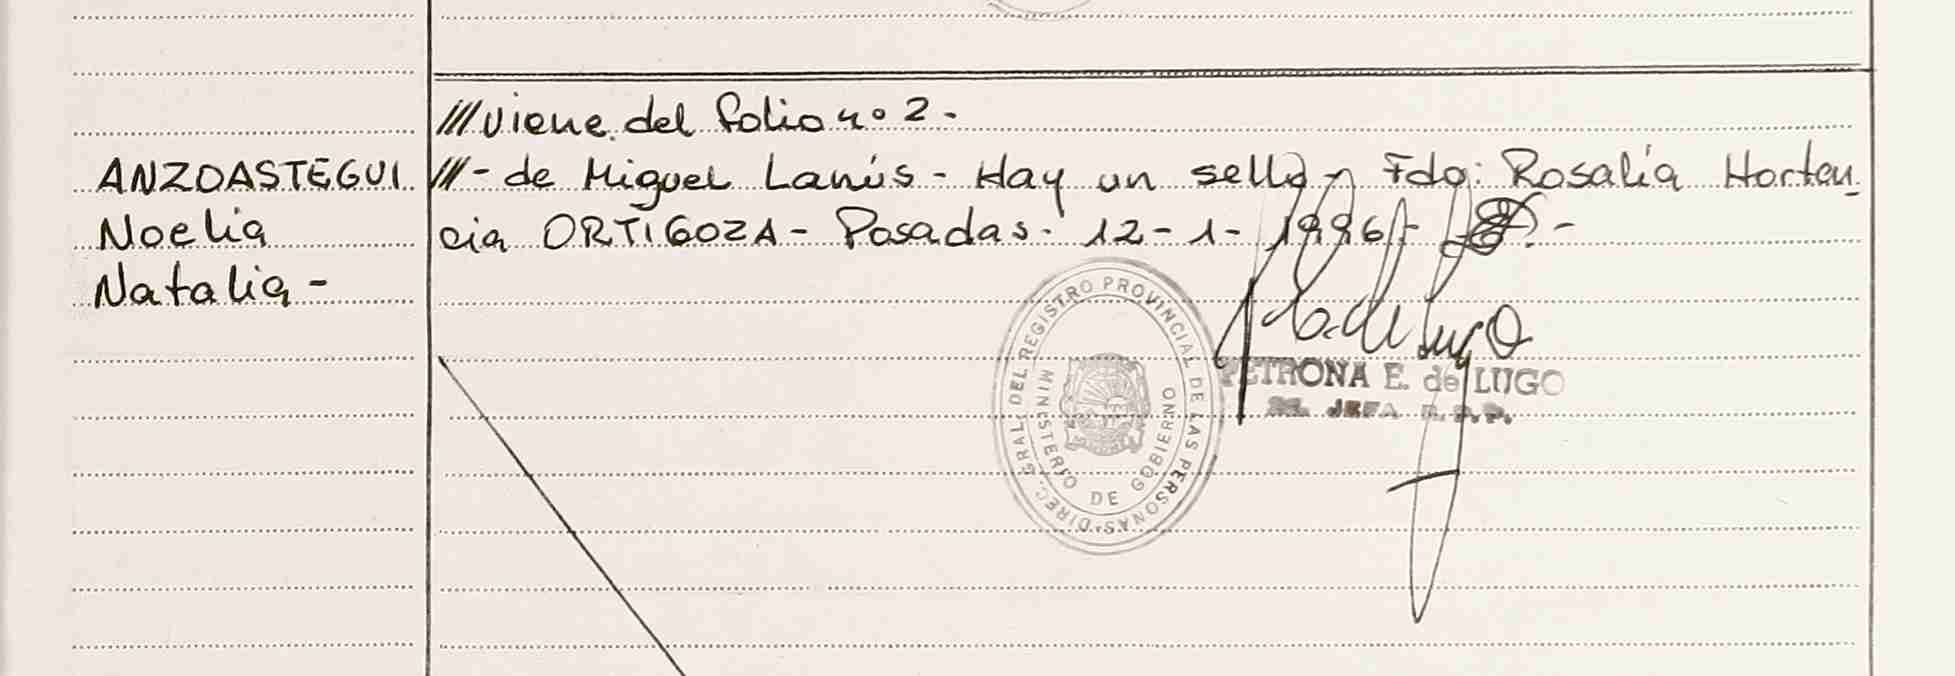 ///viene del folio no 2-
ANZOASTEGUI
Noelia
Natalia-
///-de Miguel Lanús- Hay un sello- Fdo: Rosalía Horten
cia ORTIGOZA- Posadas. 12-1-1996-
DIREC. GRAL. DEL REGISTRO PROVINCIAL DE LAS PERSONAS
MINISTERIO DE GOBIERNO
PETRONA E. de LUGO
JEFA